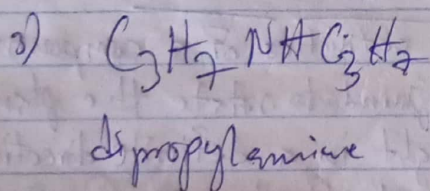 3) C₃H₇NHC₃H₇
dipropylamine